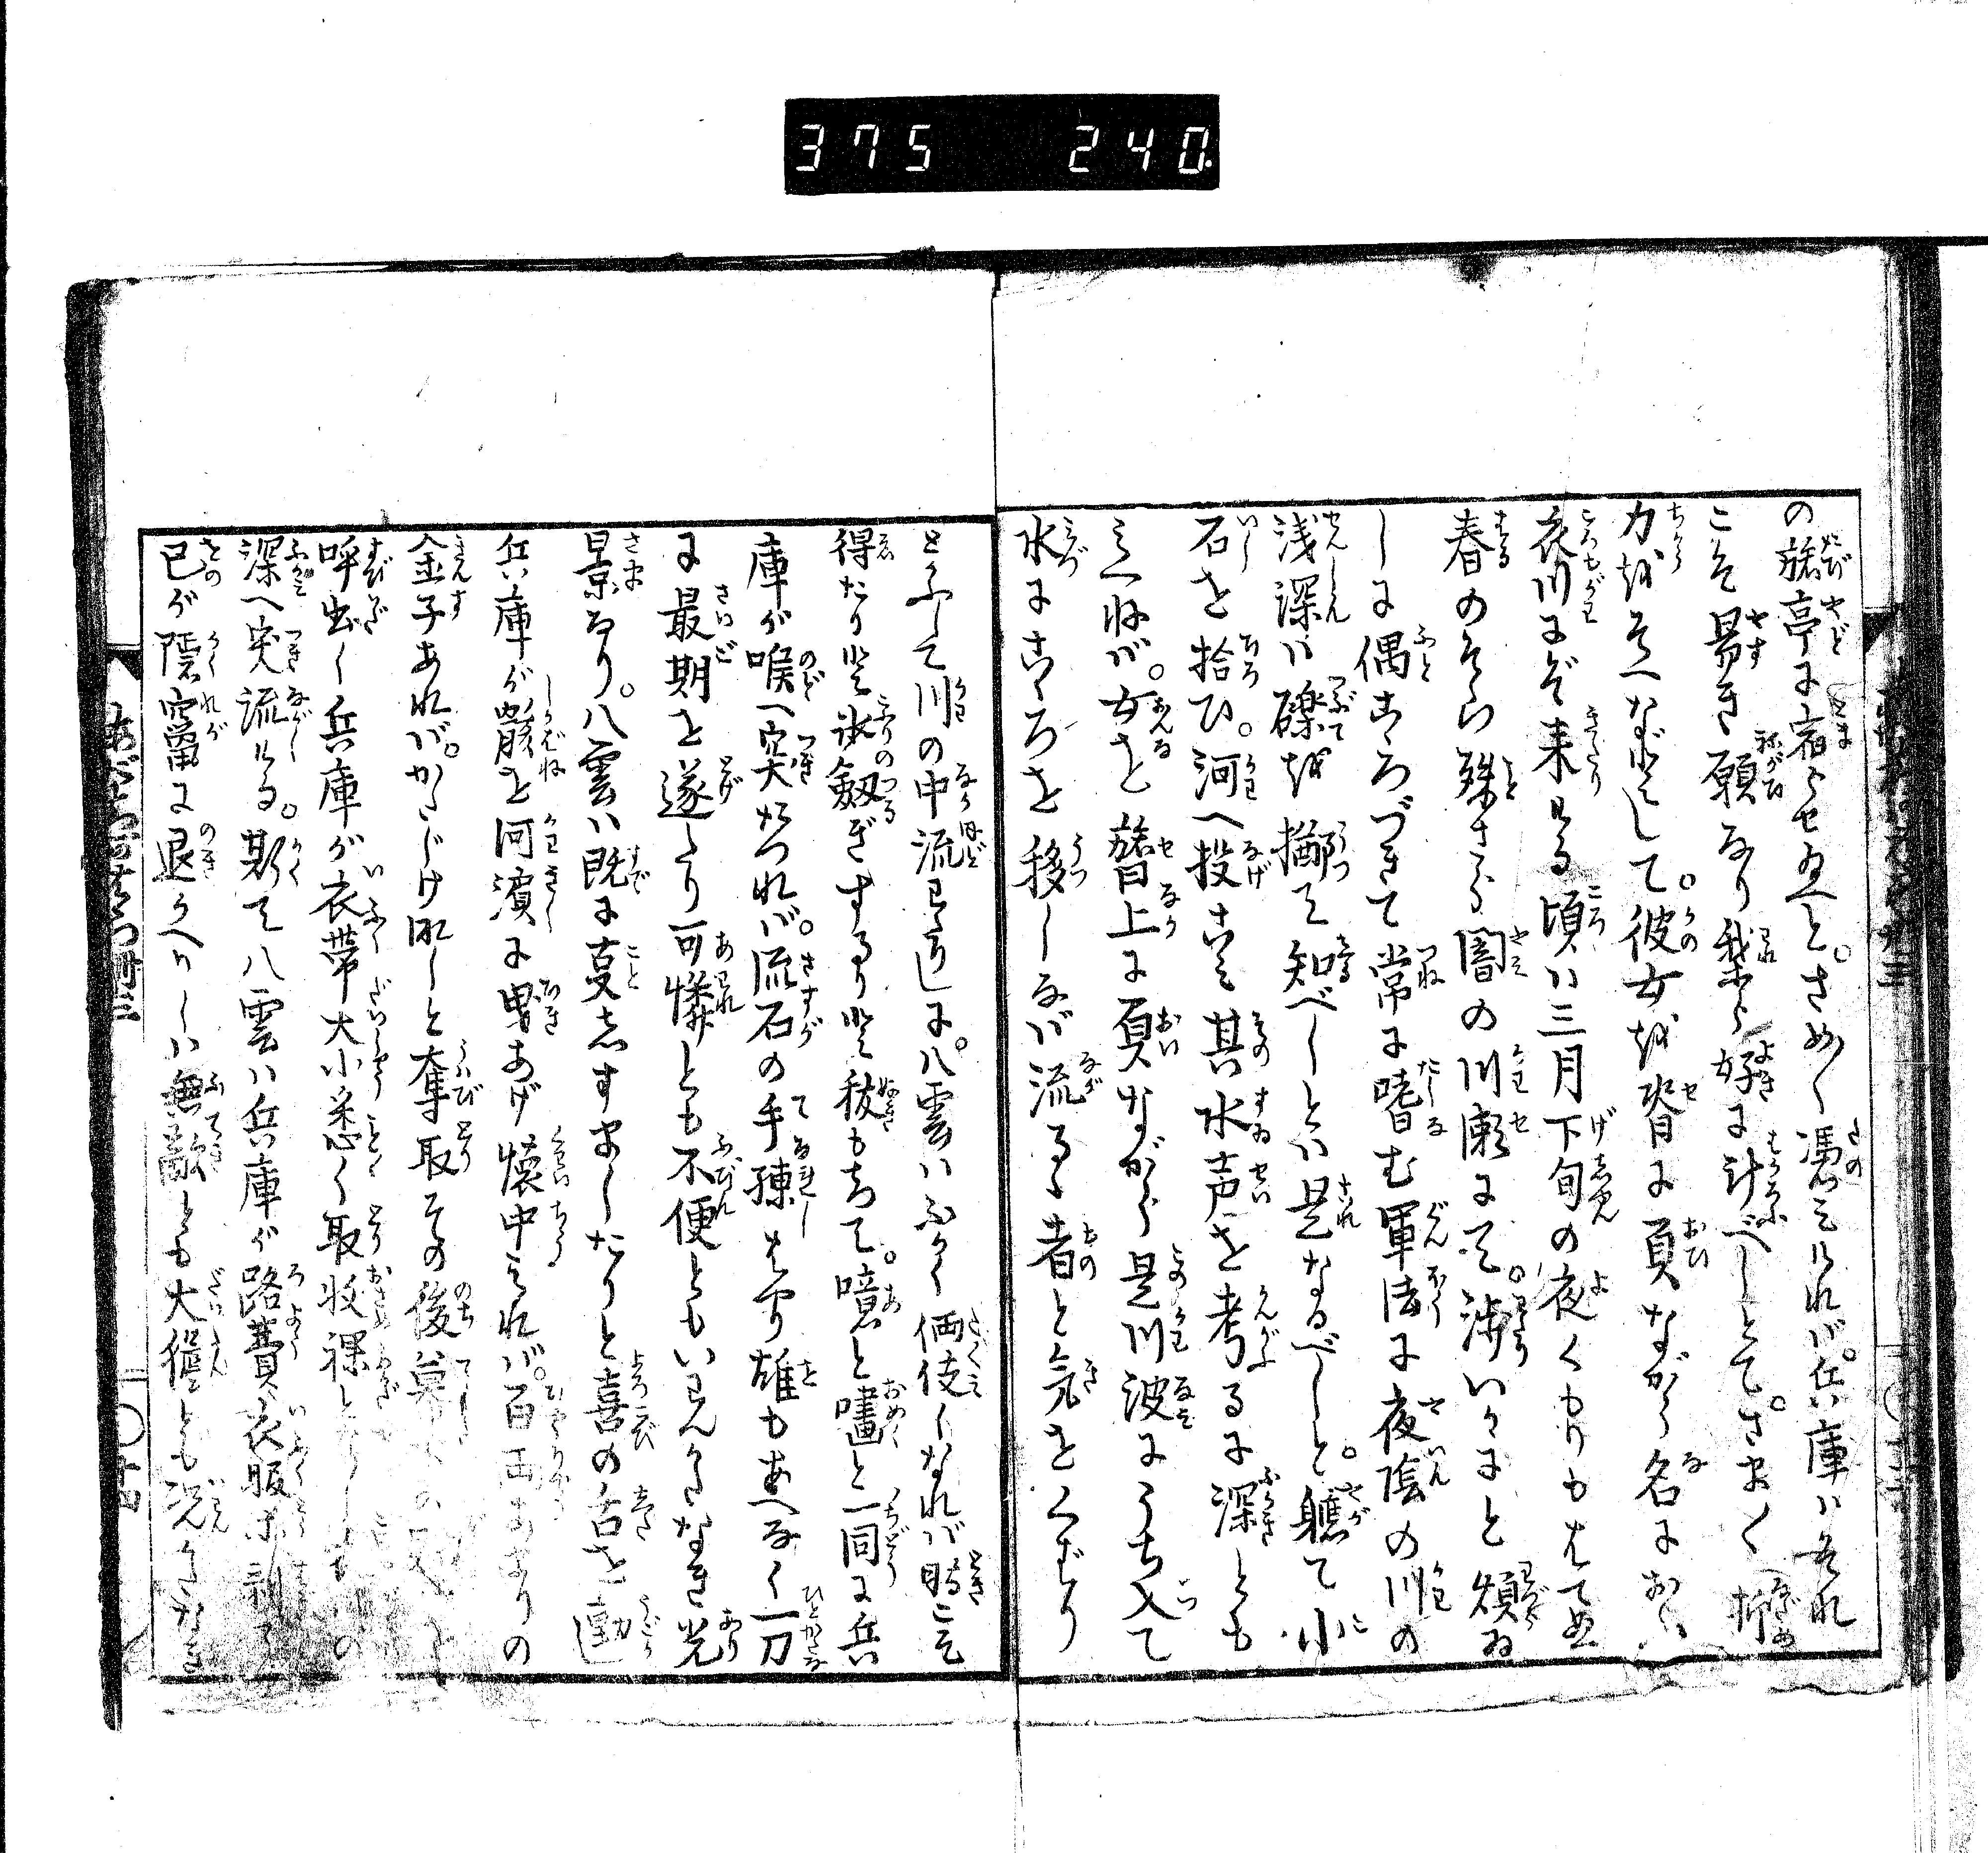 375 240
の旅亭に宿らせ玉へと。さめ〴〵憑みければ。兵庫はそれ
こそ易き願なり我よう好に計べしとて。さま〴〵
力をそへなどして。彼女を背に負ながら名におふ
衣川にぞ来りける頃は三月下旬の夜くもりもはてぬ
春のそら殊さら闇の川瀬にて。渉いかにと煩ゐ
しに偶こゝろづきて常に嗜む軍法に夜陰の川の
浅深は礫を擲て知べしとは是なるべしと。軈て小
石を拾ひ。河へ投こみ其水声を考るに深しとも
みへねば。女を背上に負ながら是川波にうち入て
水にこゝろを移しなば流るゝ者と気をくばり
とかふして川の中流にいたりしに。八雲はふかく伎なれば時こそ
得たりと氷の剱ぎするりと抜もちて。噫と嚍と一同に兵
庫が喉へ突たつれば。流石の手練はやり雄もあへなく一刀
に最期を遂たり可憐とも不便ともいわんかたなき光
景なり。八雲は既に事すましたりと喜の舌を動
兵庫が骸を河濱に曳あげ懐中みれば。百両あまりの
金子あれば。かたじけなしと奪取その後
呼出し兵庫が衣帯大小悉く取収裸となし
深へ突流しける。斯て八雲は兵庫が路費衣服
己が隠家に退しは無敵とも大胆とも況かたなき